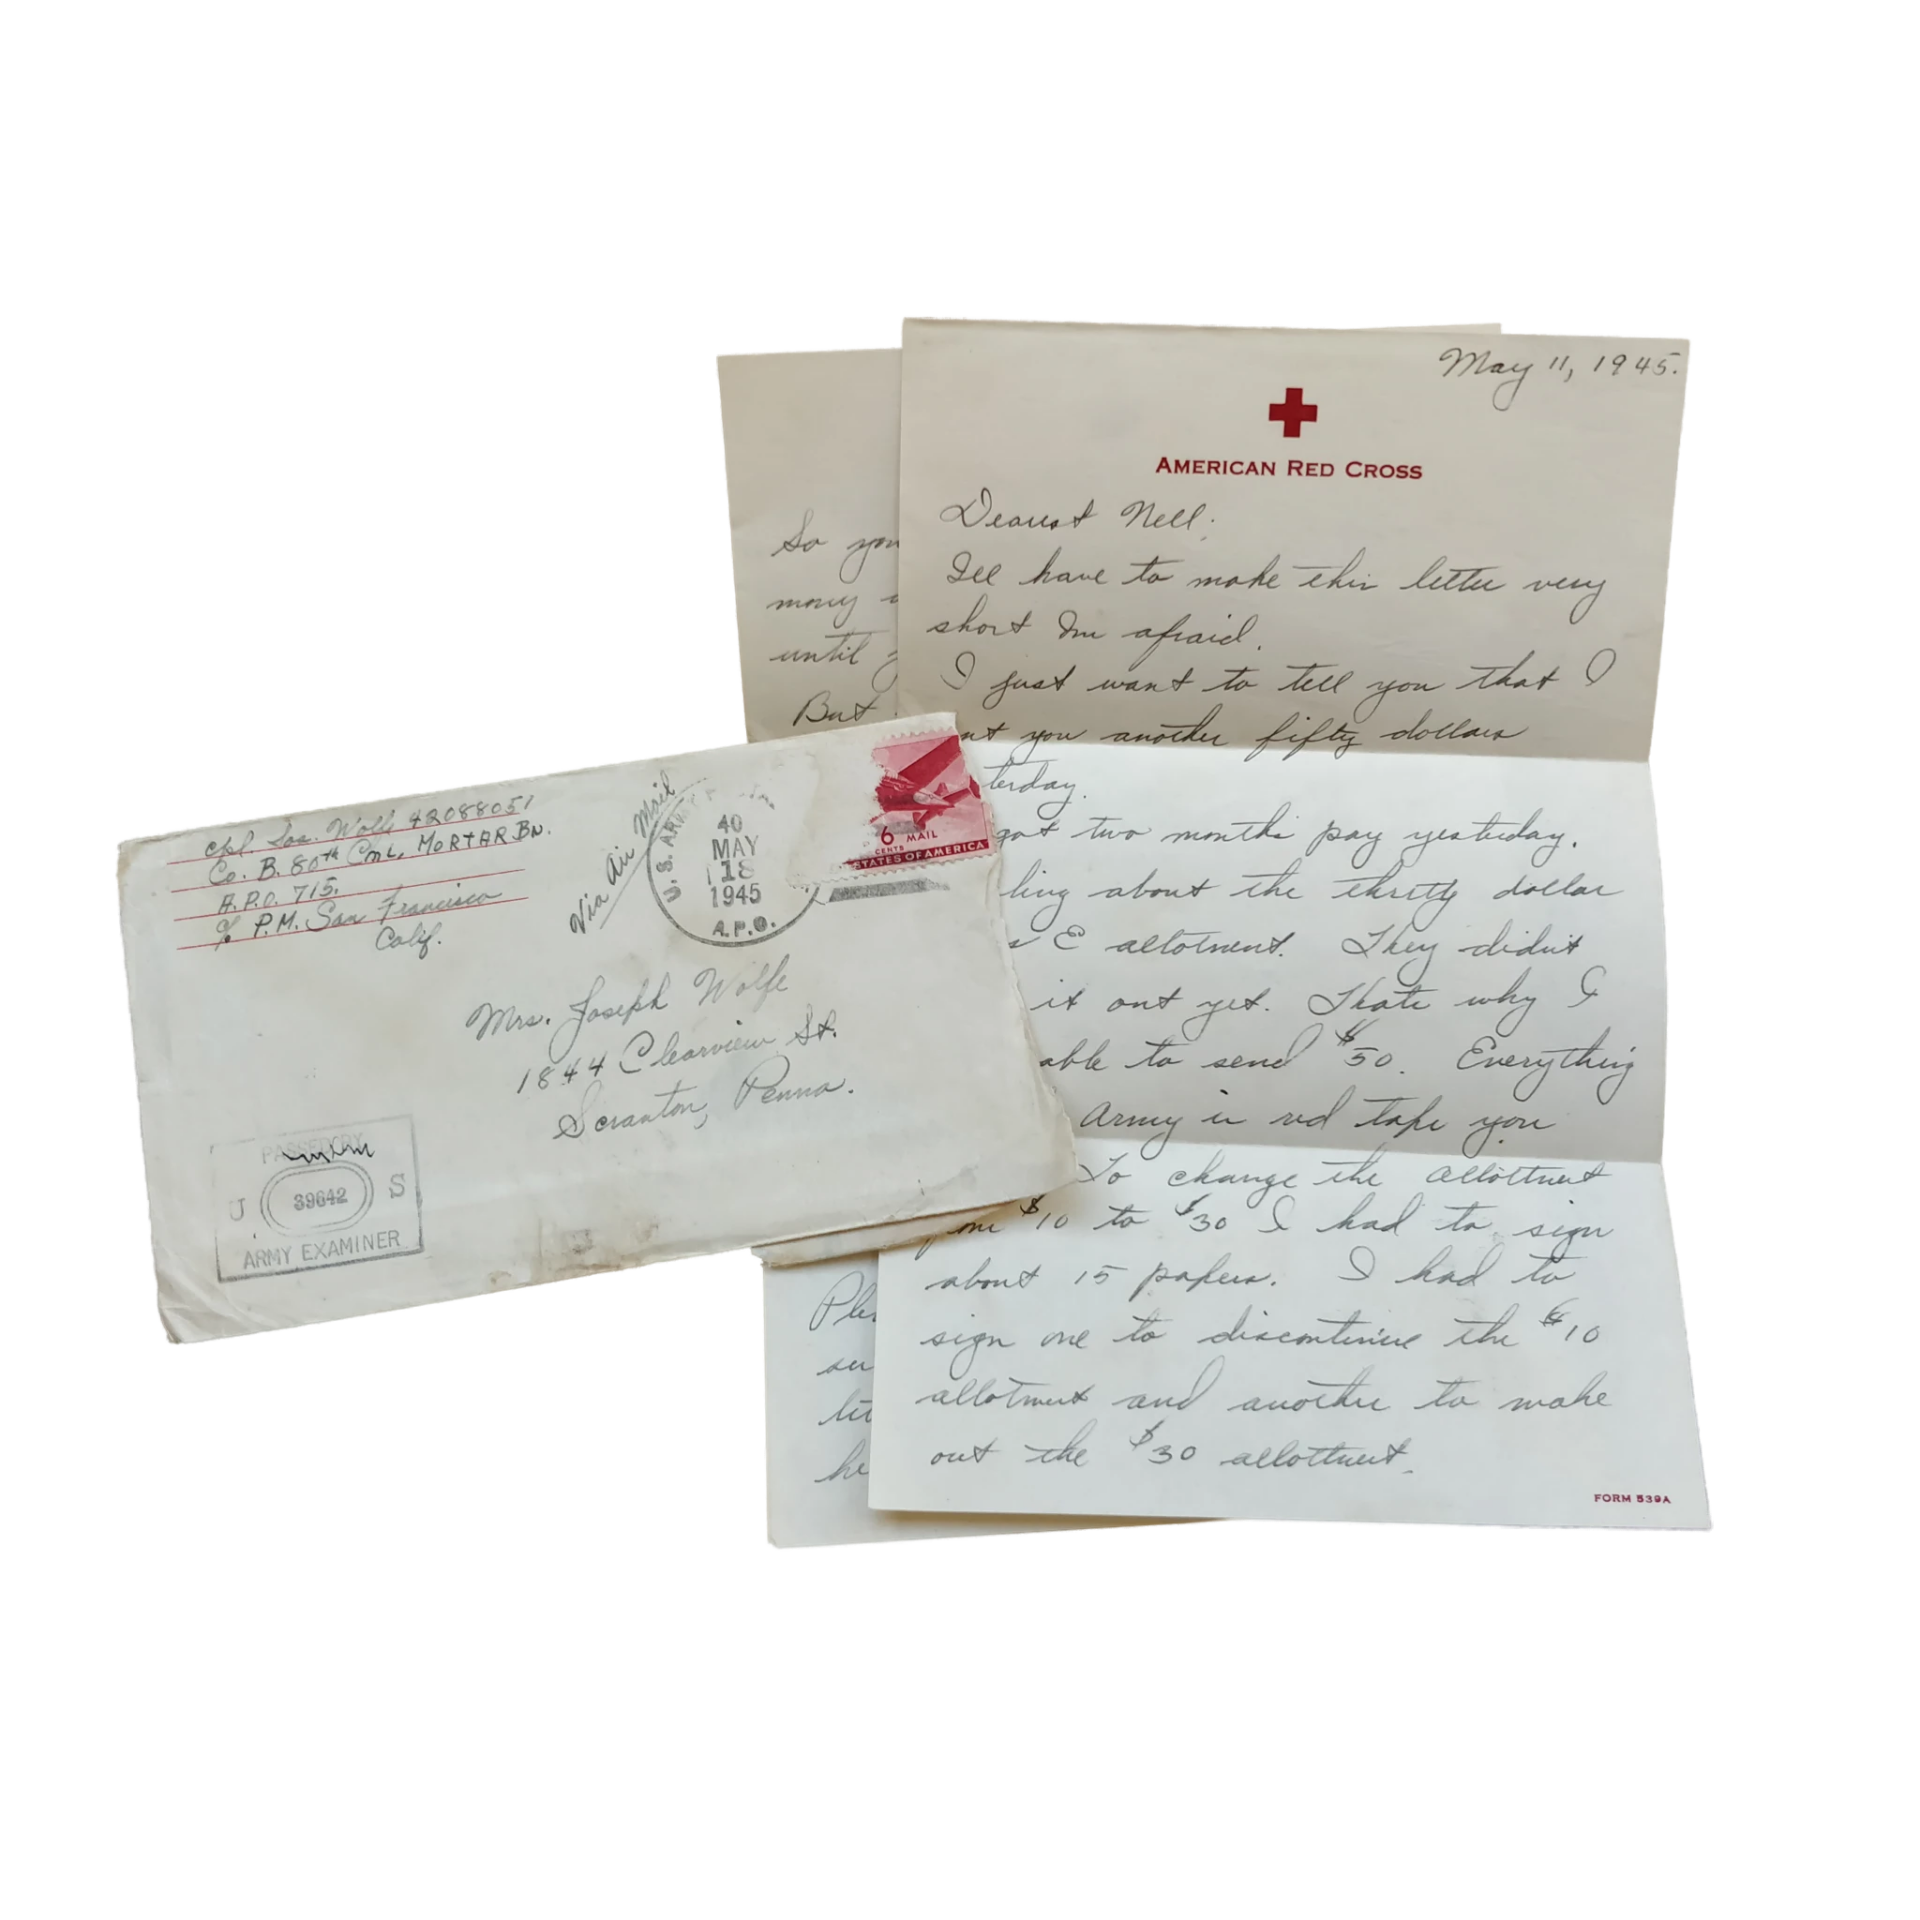 May 11, 1945.
AMERICAN RED CROSS
Dearest Nell:
Ill have to make this letter very
short Im afraid.
I just want to tell you that I
nt you another fifty dollars
terday.
got two months pay yesterday.
ling about the thirty dollar
s E allotment. They didnt
it out yet. Thats why I
able to send $50. Everything
Army is red tape you
To change the allottment
$10 to $30 I had to sign
about 15 papers. I had to
sign one to discontinue the $10
allotment and another to make
out the $30 allottment.
FORM 539A
So you
money
until
But
Ple
su
let
he
Cpl. Jos. Wolfe 42088051
Co. B. 80th Cml. MORTAR BN.
A.P.O. 715.
c/o P.M. San Francisco
Calif.
Via Air Mail
U.S. ARMY
40
MAY
18
1945
A.P.O.
6 CENTS MAIL
STATES OF AMERICA
Mrs. Joseph Wolfe
1844 Clearview St.
Scranton, Penna.
PASSED BY
U 39642 S
ARMY EXAMINER